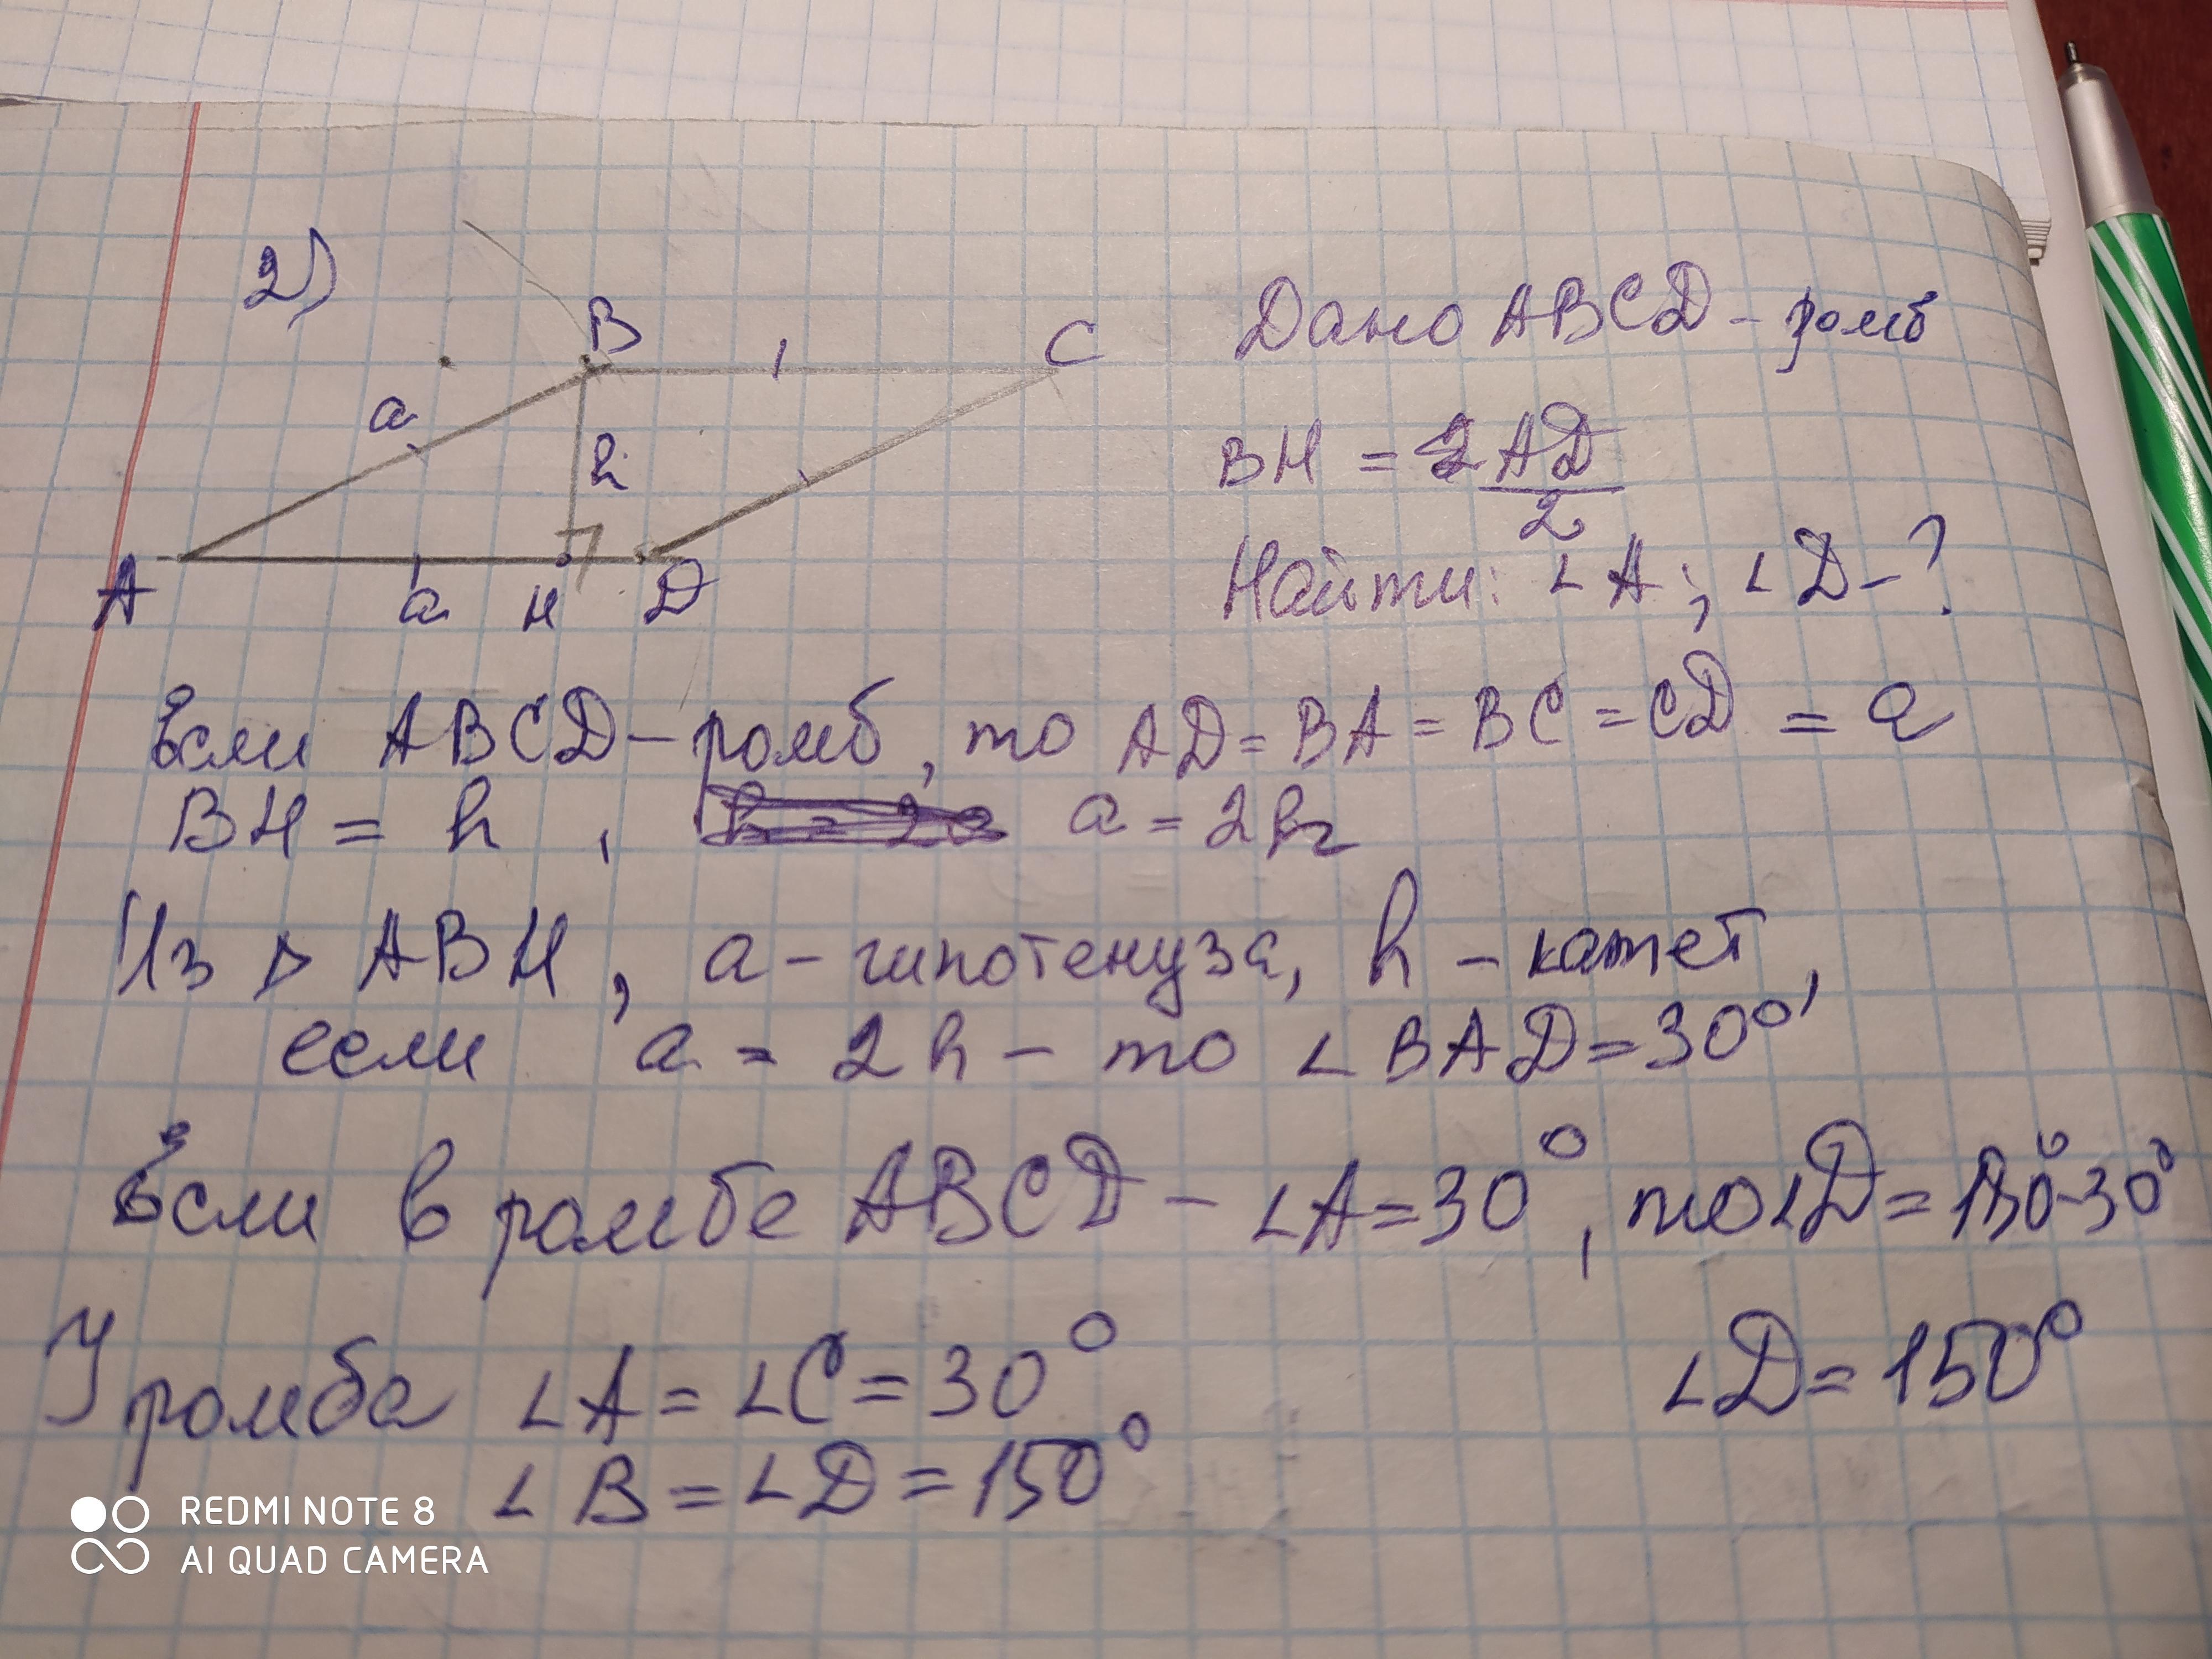 2)
B
C
a
h
A
a
H
D
Дано ABCD - ромб
BH = AD/2
Найти: ∠A; ∠D - ?
Если ABCD - ромб, то AD = BA = BC = CD = a
BH = h , a = 2h
Из △ ABH, a - гипотенуза, h - катет,
если a = 2h - то ∠BAD = 30°,
Если в ромбе ABCD - ∠A = 30°, то ∠D = 180° - 30°
∠D = 150°
У ромба ∠A = ∠C = 30°
∠B = ∠D = 150°
REDMI NOTE 8
AI QUAD CAMERA